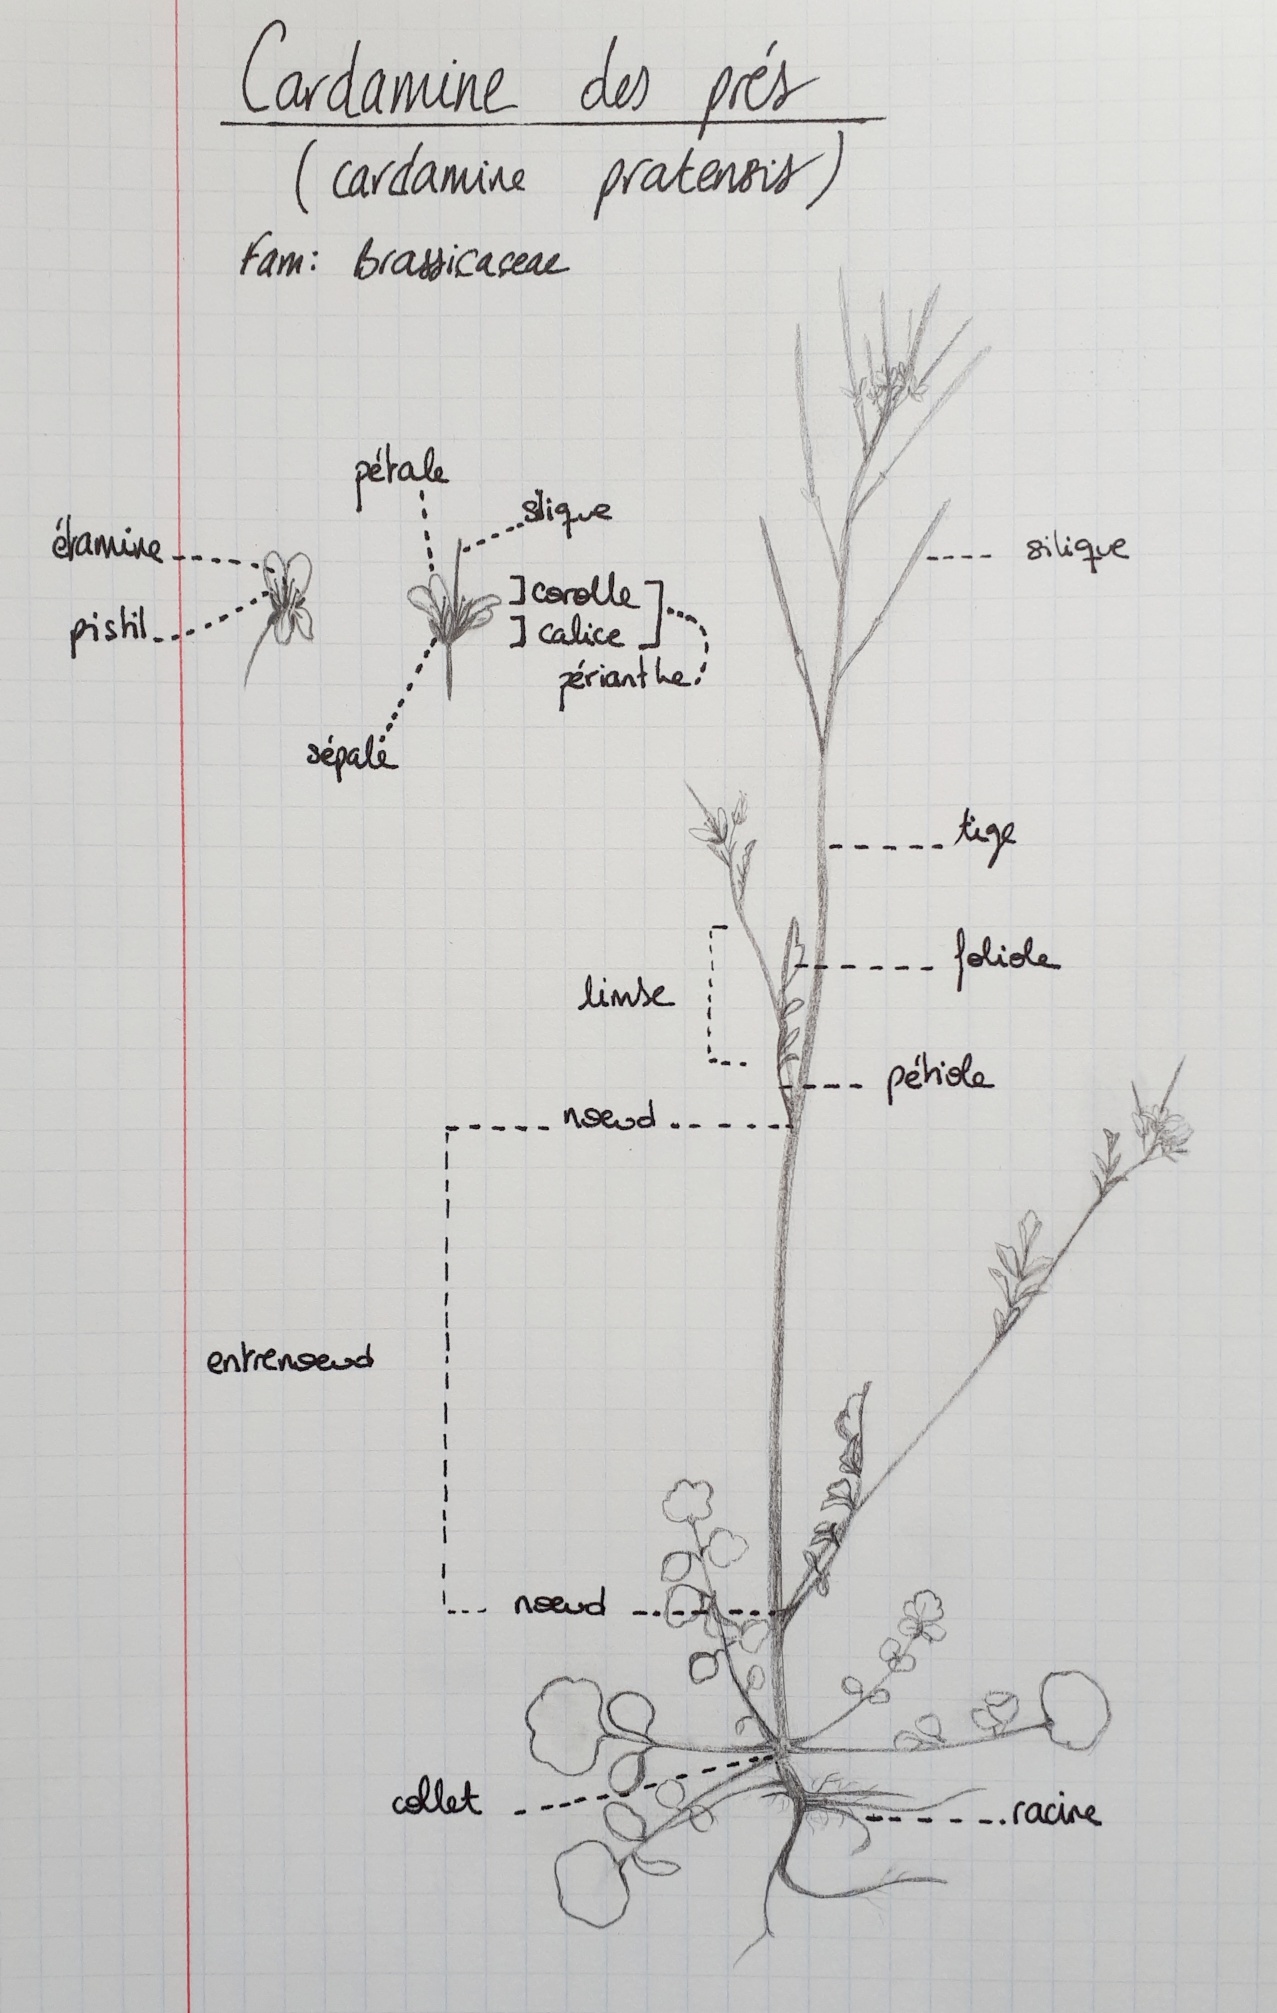 Cardamine des prés
(cardamine pratensis)
Fam: Brassicaceae
pétale
slique
étamine
silique
] corolle ]
pistil
] calice
périanthe
sépale
tige
foliole
limbe
pétiole
nœud
entrenœud
nœud
collet
racine